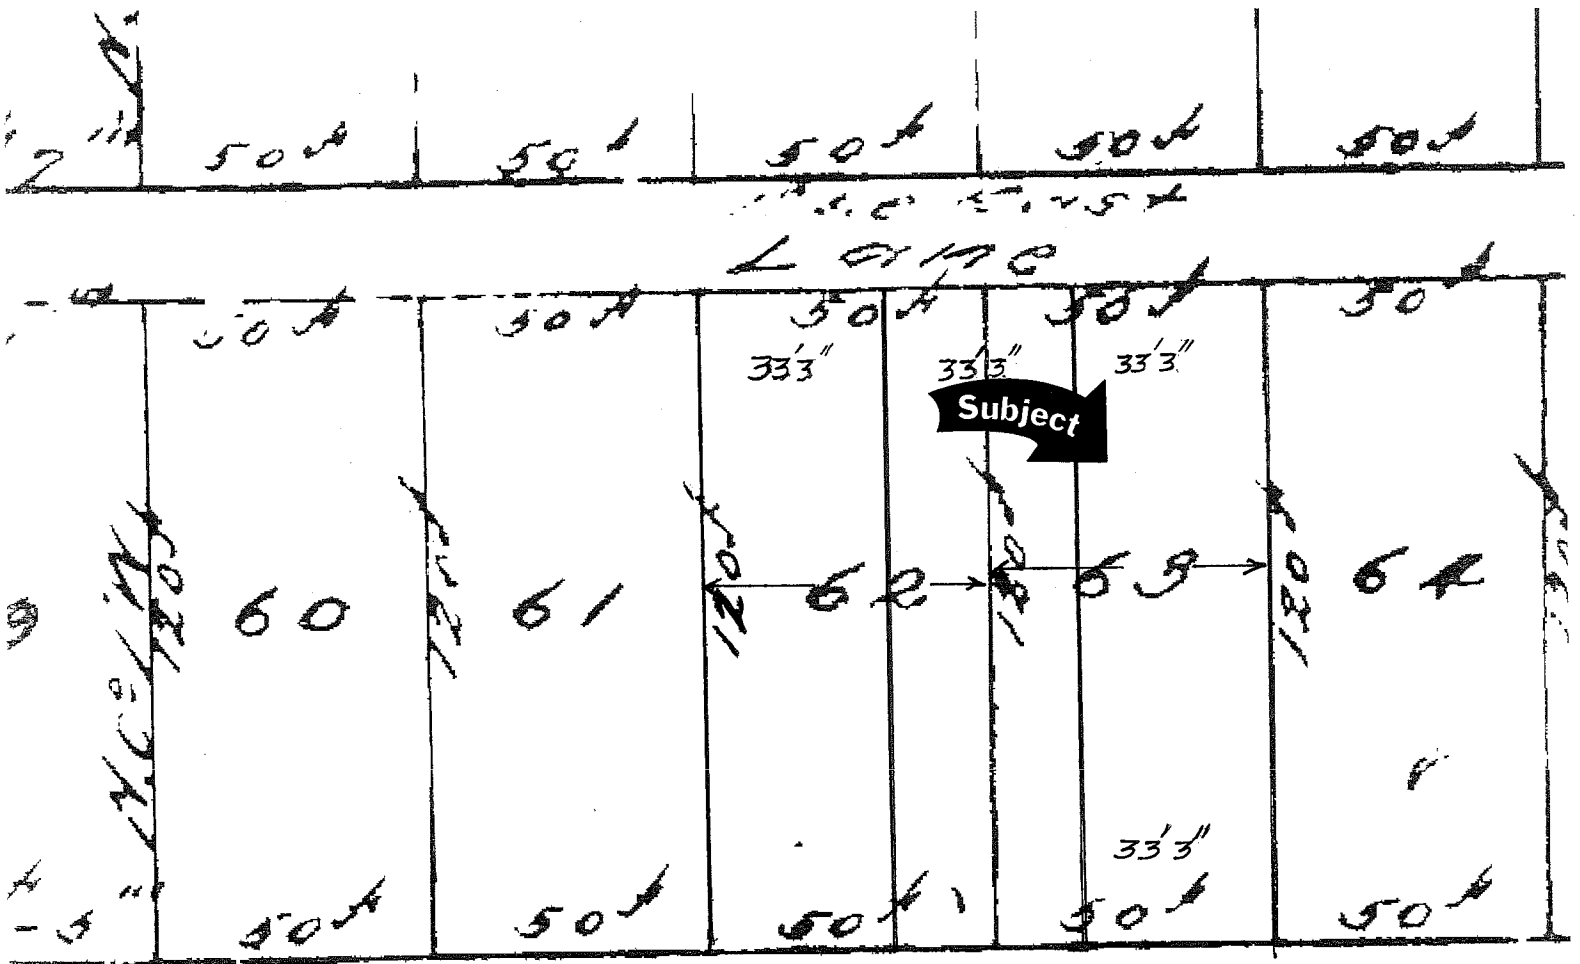 50 ft 50 ft 50 ft 50 ft 50 ft
Lane
50 ft 50 ft 50 ft 50 ft 50 ft
33'3" 33'3" 33'3"
Subject
120 ft 120 ft 120 ft 120 ft
60 61 62 63 64
33'3"
50 ft 50 ft 50 ft 50 ft 50 ft